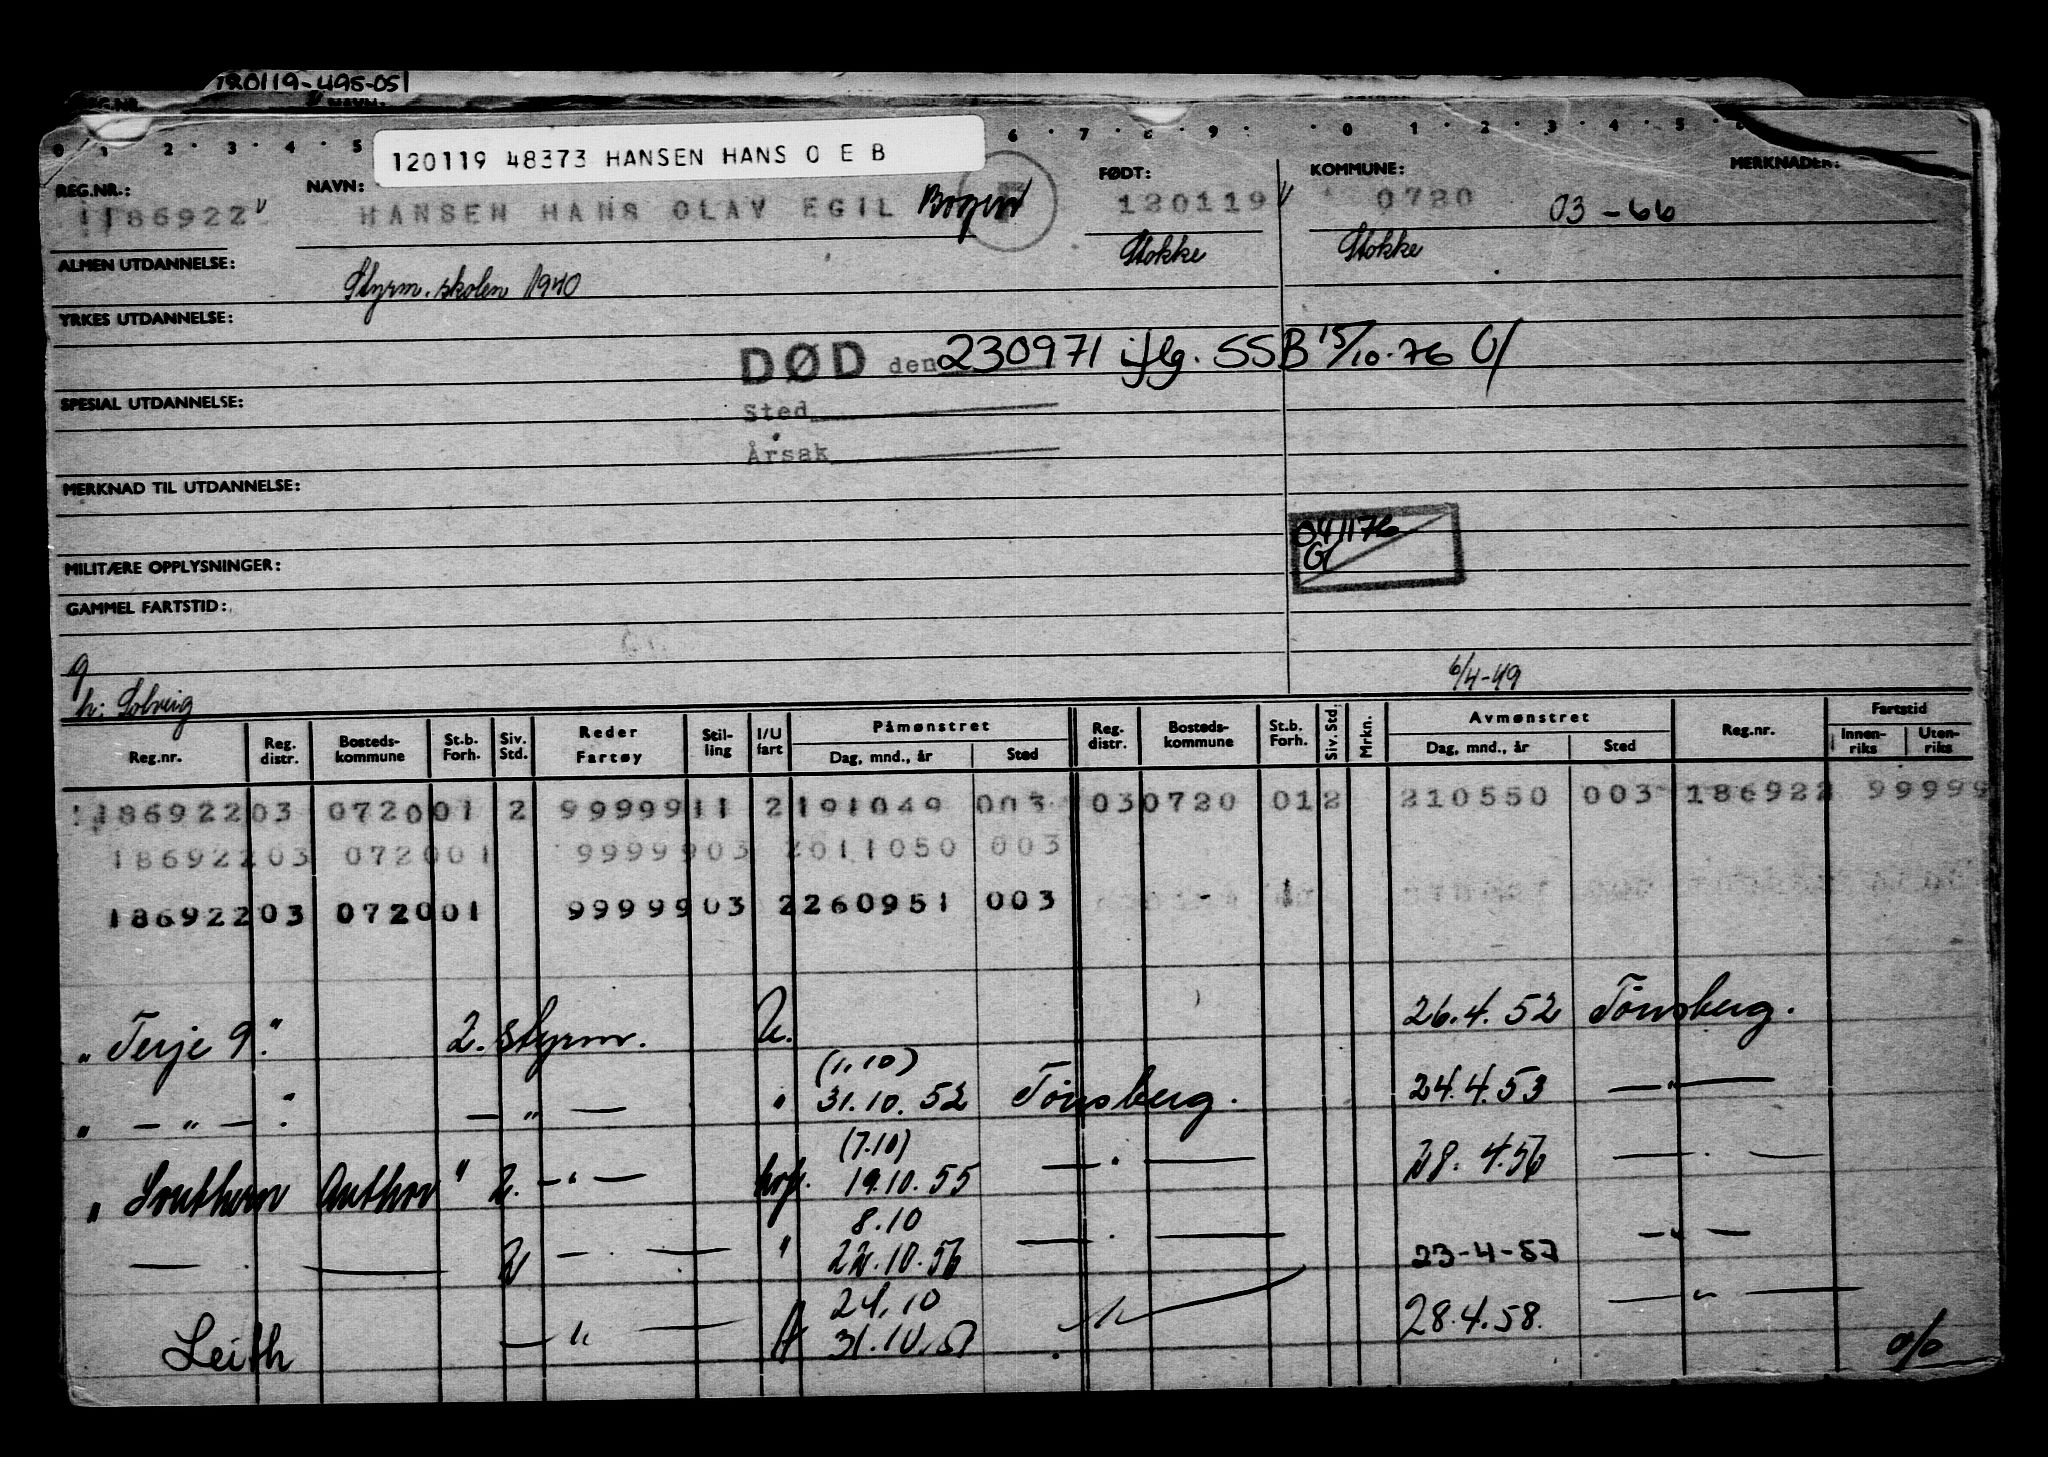 120119-495-051
REG.NR. NAVN:
0 1 2 3 4 5 6 7 8 9 0 1 2 3 4 5
120119 48373 HANSEN HANS O E B
REG.NR.: NAVN: FØDT: KOMMUNE: MERKNADER:
186922 HANSEN HANS OLAV EGIL 120119 0720 03-66
Stokke Stokke
ALMEN UTDANNELSE:
Styrm.skolen 1940
YRKES UTDANNELSE:
DØD den 230971 iflg. SSB 15/10-76
SPESIAL UTDANNELSE:
Sted
Årsak
MERKNAD TIL UTDANNELSE:
041176
G
MILITÆRE OPPLYSNINGER:
GAMMEL FARTSTID:
g 6/4-49
h: Solveig
Reg.nr. Reg. distr. Bosteds-kommune St.b. Forh. Siv. Std. Reder Fartøy Stil-ling I/U fart Påmønstret Dag, mnd., år Sted Reg. distr. Bosteds-kommune St.b. Forh. Siv. Std. Mrkn. Avmønstret Dag, mnd., år Sted Reg.nr. Fartstid Innen-riks Uten-riks
186922 03 0720 01 2 99999 11 2 191049 003 03 0720 01 2 210550 003 186922 99999
186922 03 0720 01 99999 03 2 011050 003
186922 03 0720 01 99999 03 2 260951 003
"Terje 9." 2. styrm. U. 26.4.52 Tönsberg.
(1.10)
" — " — " — " — " 31.10.52 Tönsberg. 24.4.53 — " —
(7.10)
"Southern Author" 2. — " — hvf. 19.10.55 — " — 28.4.56 — " —
8.10
— " — 2 — " — " 22.10.56 — " — 23-4-57 — " —
24.10
Leith — " — 31.10.57 — " — 28.4.58. — " —
o/o